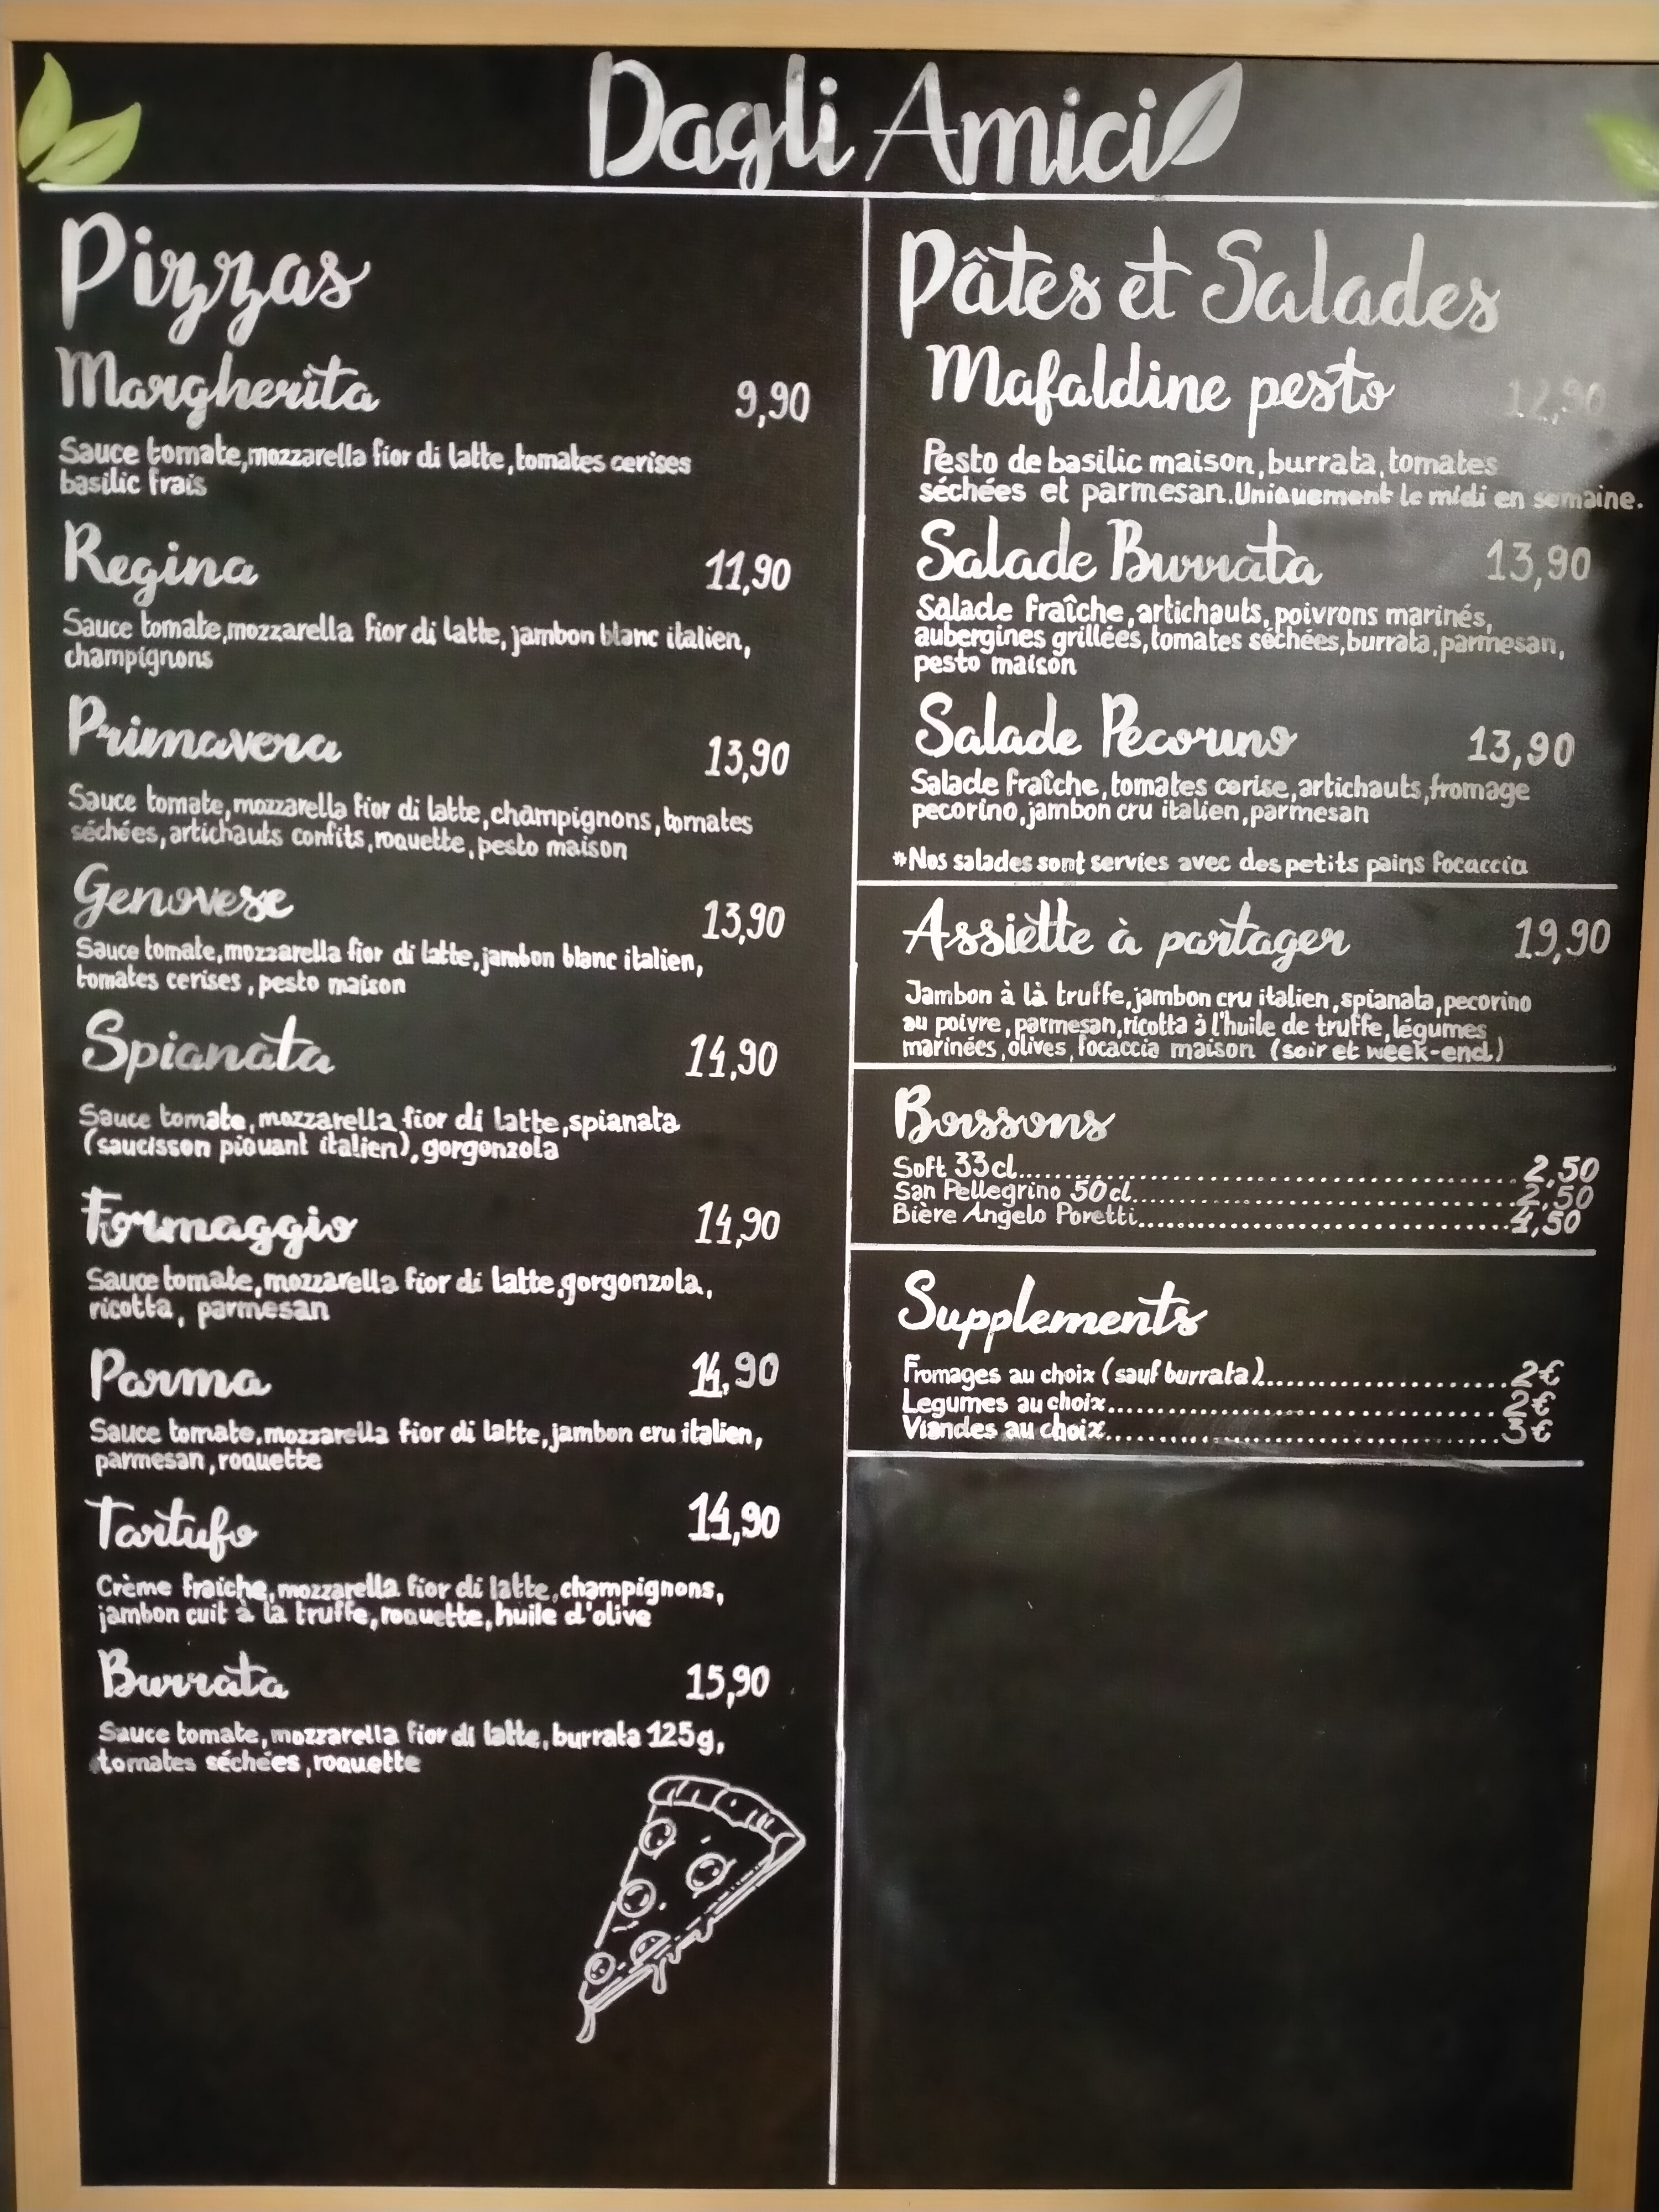 Dagli Amici
Pizzas
Margherita 9,90
Sauce tomate,mozzarella fior di latte,tomates cerises
basilic frais
Regina 11,90
Sauce tomate,mozzarella fior di latte,jambon blanc italien,
champignons
Primavera 13,90
Sauce tomate,mozzarella fior di latte,champignons,tomates
séchées,artichauts confits,roquette,pesto maison
Genovese 13,90
Sauce tomate,mozzarella fior di latte,jambon blanc italien,
tomates cerises,pesto maison
Spianata 14,90
Sauce tomate,mozzarella fior di latte,spianata
(saucisson piquant italien),gorgonzola
Formaggio 14,90
Sauce tomate,mozzarella fior di latte,gorgonzola,
ricotta, parmesan
Parma 14,90
Sauce tomate,mozzarella fior di latte,jambon cru italien,
parmesan,roquette
Tartufo 14,90
Crème fraiche,mozzarella fior di latte,champignons,
jambon cuit à la truffe,roquette,huile d'olive
Burrata 15,90
Sauce tomate,mozzarella fior di latte,burrata 125g,
tomates séchées,roquette
Pâtes et Salades
Mafaldine pesto 12,90
Pesto de basilic maison,burrata,tomates
séchées et parmesan.Uniquement le midi en semaine.
Salade Burrata 13,90
Salade fraîche,artichauts,poivrons marinés,
aubergines grillées,tomates séchées,burrata,parmesan,
pesto maison
Salade Pecorino 13,90
Salade fraîche,tomates cerise,artichauts,fromage
pecorino,jambon cru italien,parmesan
*Nos salades sont servies avec des petits pains focaccia
Assiette à partager 19,90
Jambon à là truffe,jambon cru italien,spianata,pecorino
au poivre,parmesan,ricotta à l'huile de truffe,légumes
marinées,olives,focaccia maison (soir et week-end)
Boissons
Soft 33cl.......................................2,50
San Pellegrino 50cl.......................................2,50
Bière Angelo Poretti.......................................4,50
Supplements
Fromages au choix (sauf burrata).........................2€
Legumes au choix.......................................2€
Viandes au choix.......................................3€